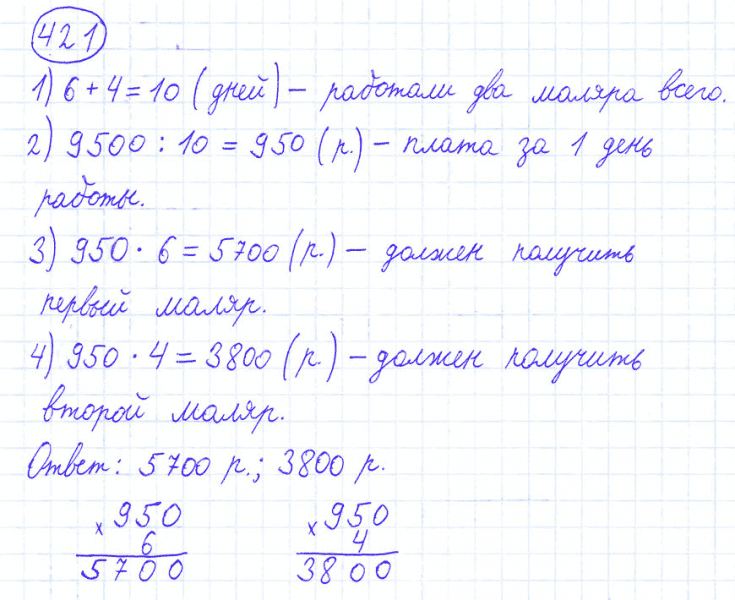 421
1) 6 + 4 = 10 (дней) – работали два маляра всего.
2) 9500 : 10 = 950 (р.) – плата за 1 день
работы.
3) 950 · 6 = 5700 (р.) – должен получить
первый маляр.
4) 950 · 4 = 3800 (р.) – должен получить
второй маляр.
Ответ: 5700 р.; 3800 р.
× 950 × 950
6 4
5700 3800